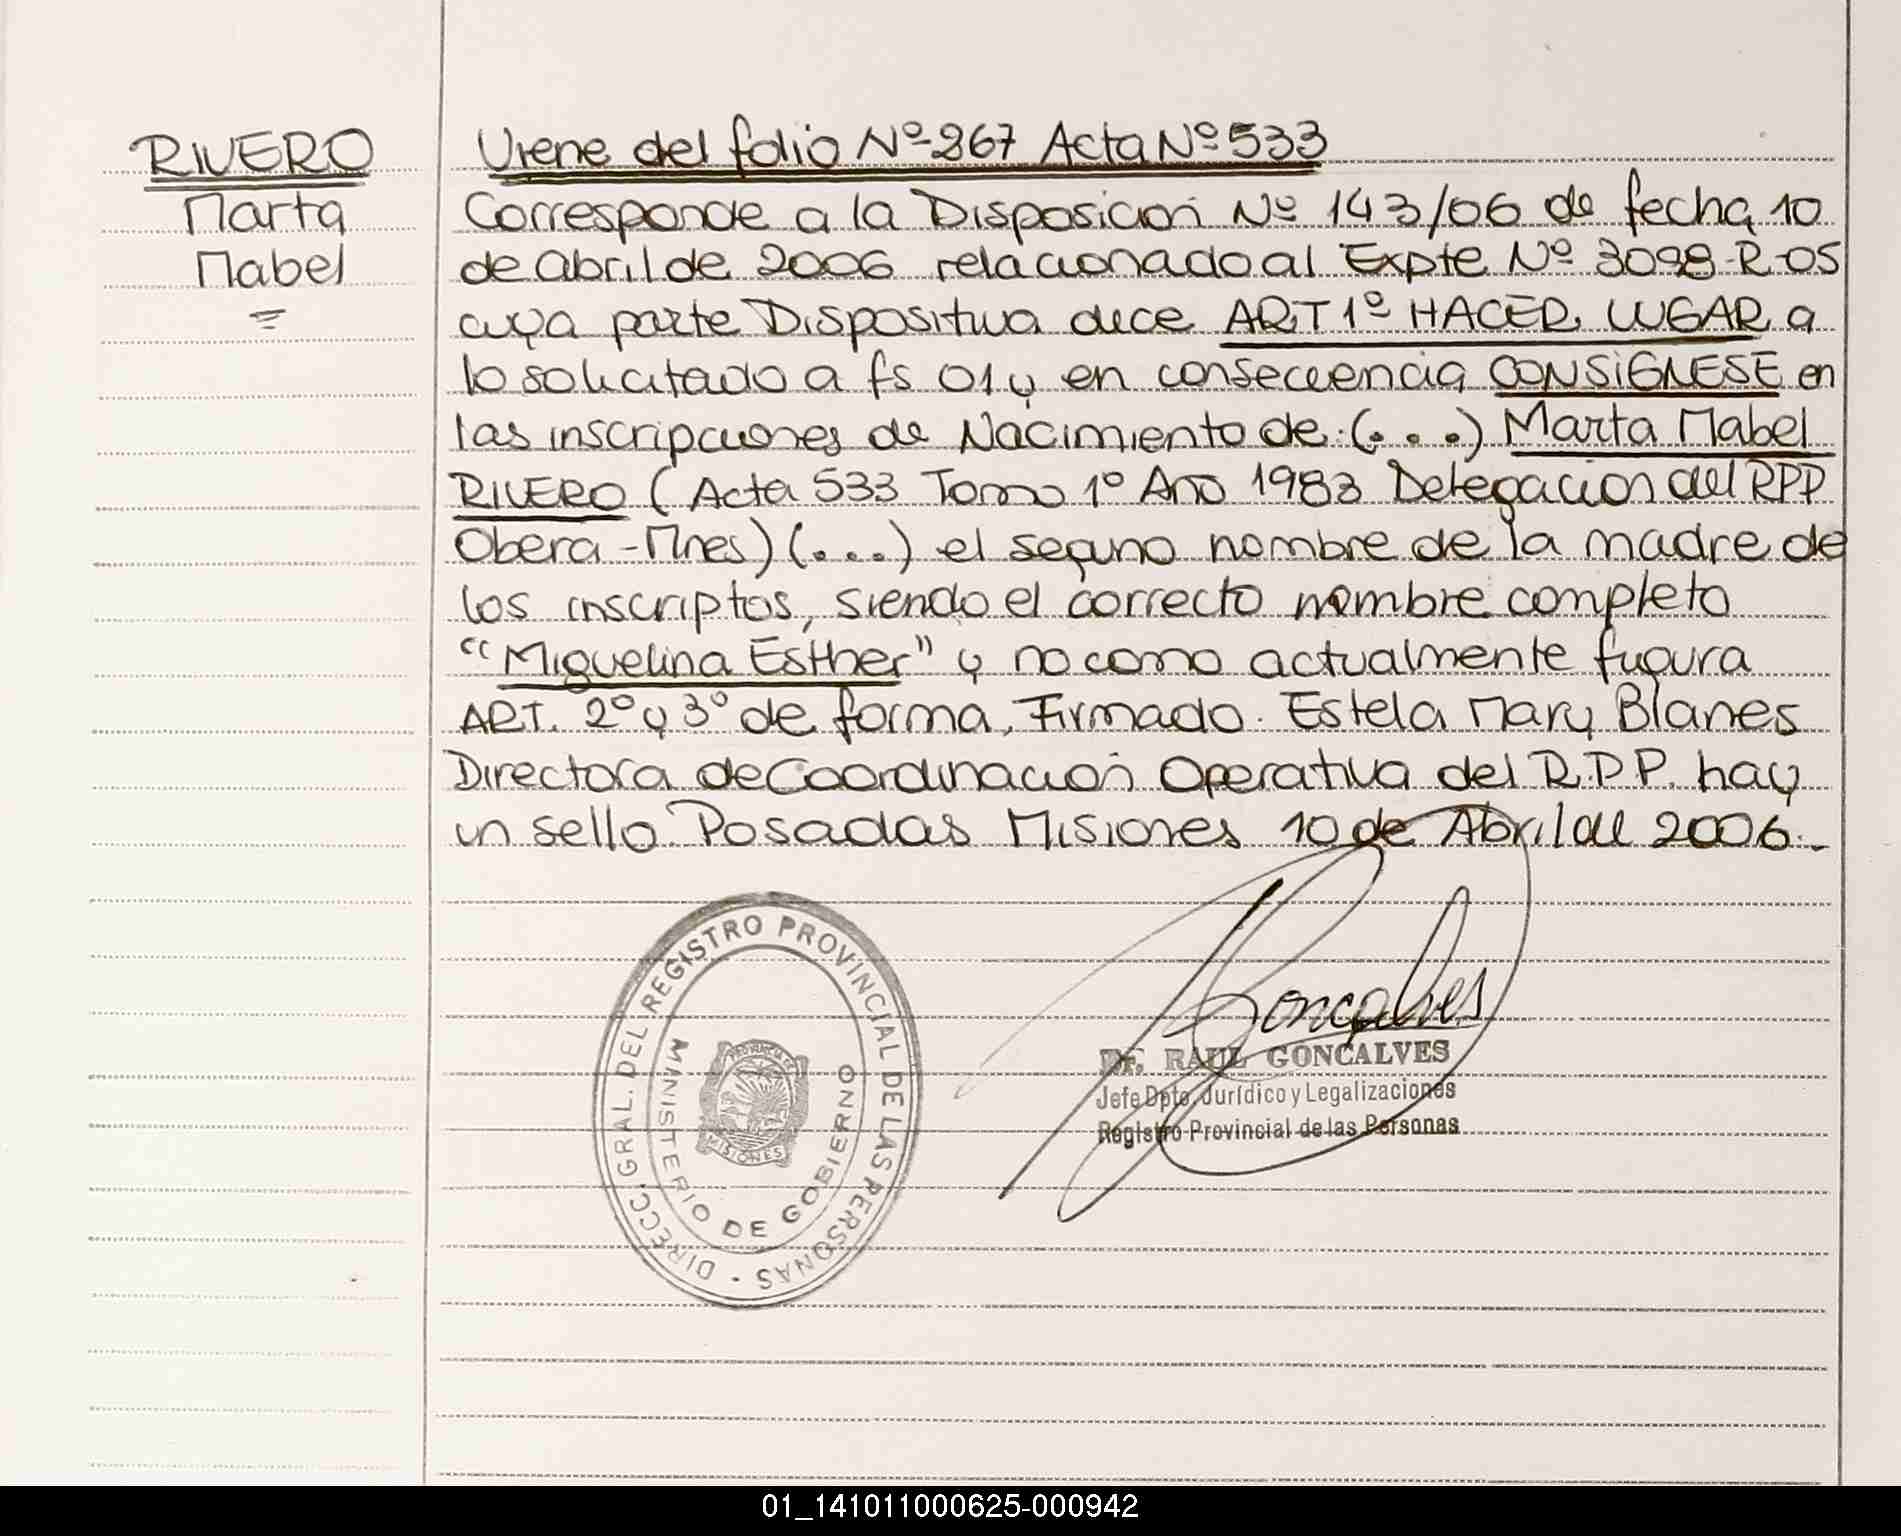 RIVERO
Marta
Mabel
Viene del folio Nº 267 Acta Nº 533
Corresponde a la Disposición Nº 143/06 de fecha 10
de abril de 2006 relacionado al Expte Nº 3098-R-05
cuya parte Dispositiva dice ART 1º HACER LUGAR a
lo solicitado a fs 01 y en consecuencia CONSIGNESE en
las inscripciones de Nacimiento de: (...) Marta Mabel
RIVERO (Acta 533 Tomo 1º Año 1983 Delegacion del RPP
Obera - Mnes) (...) el seguno nombre de la madre de
los inscriptos, siendo el correcto nombre completo
"Miguelina Esther" y no como actualmente figura
ART. 2º y 3º de forma, Firmado. Estela Mary Blanes
Directora de Coordinación Operativa del R.P.P. hay
un sello. Posadas Misiones 10 de Abril de 2006.-
DIRECC. GRAL. DEL REGISTRO PROVINCIAL DE LAS PERSONAS
MINISTERIO DE GOBIERNO
PROVINCIA DE
MISIONES
Goncalves
Dr. RAUL GONCALVES
Jefe Dpto. Jurídico y Legalizaciones
Registro Provincial de las Personas
01_141011000625-000942